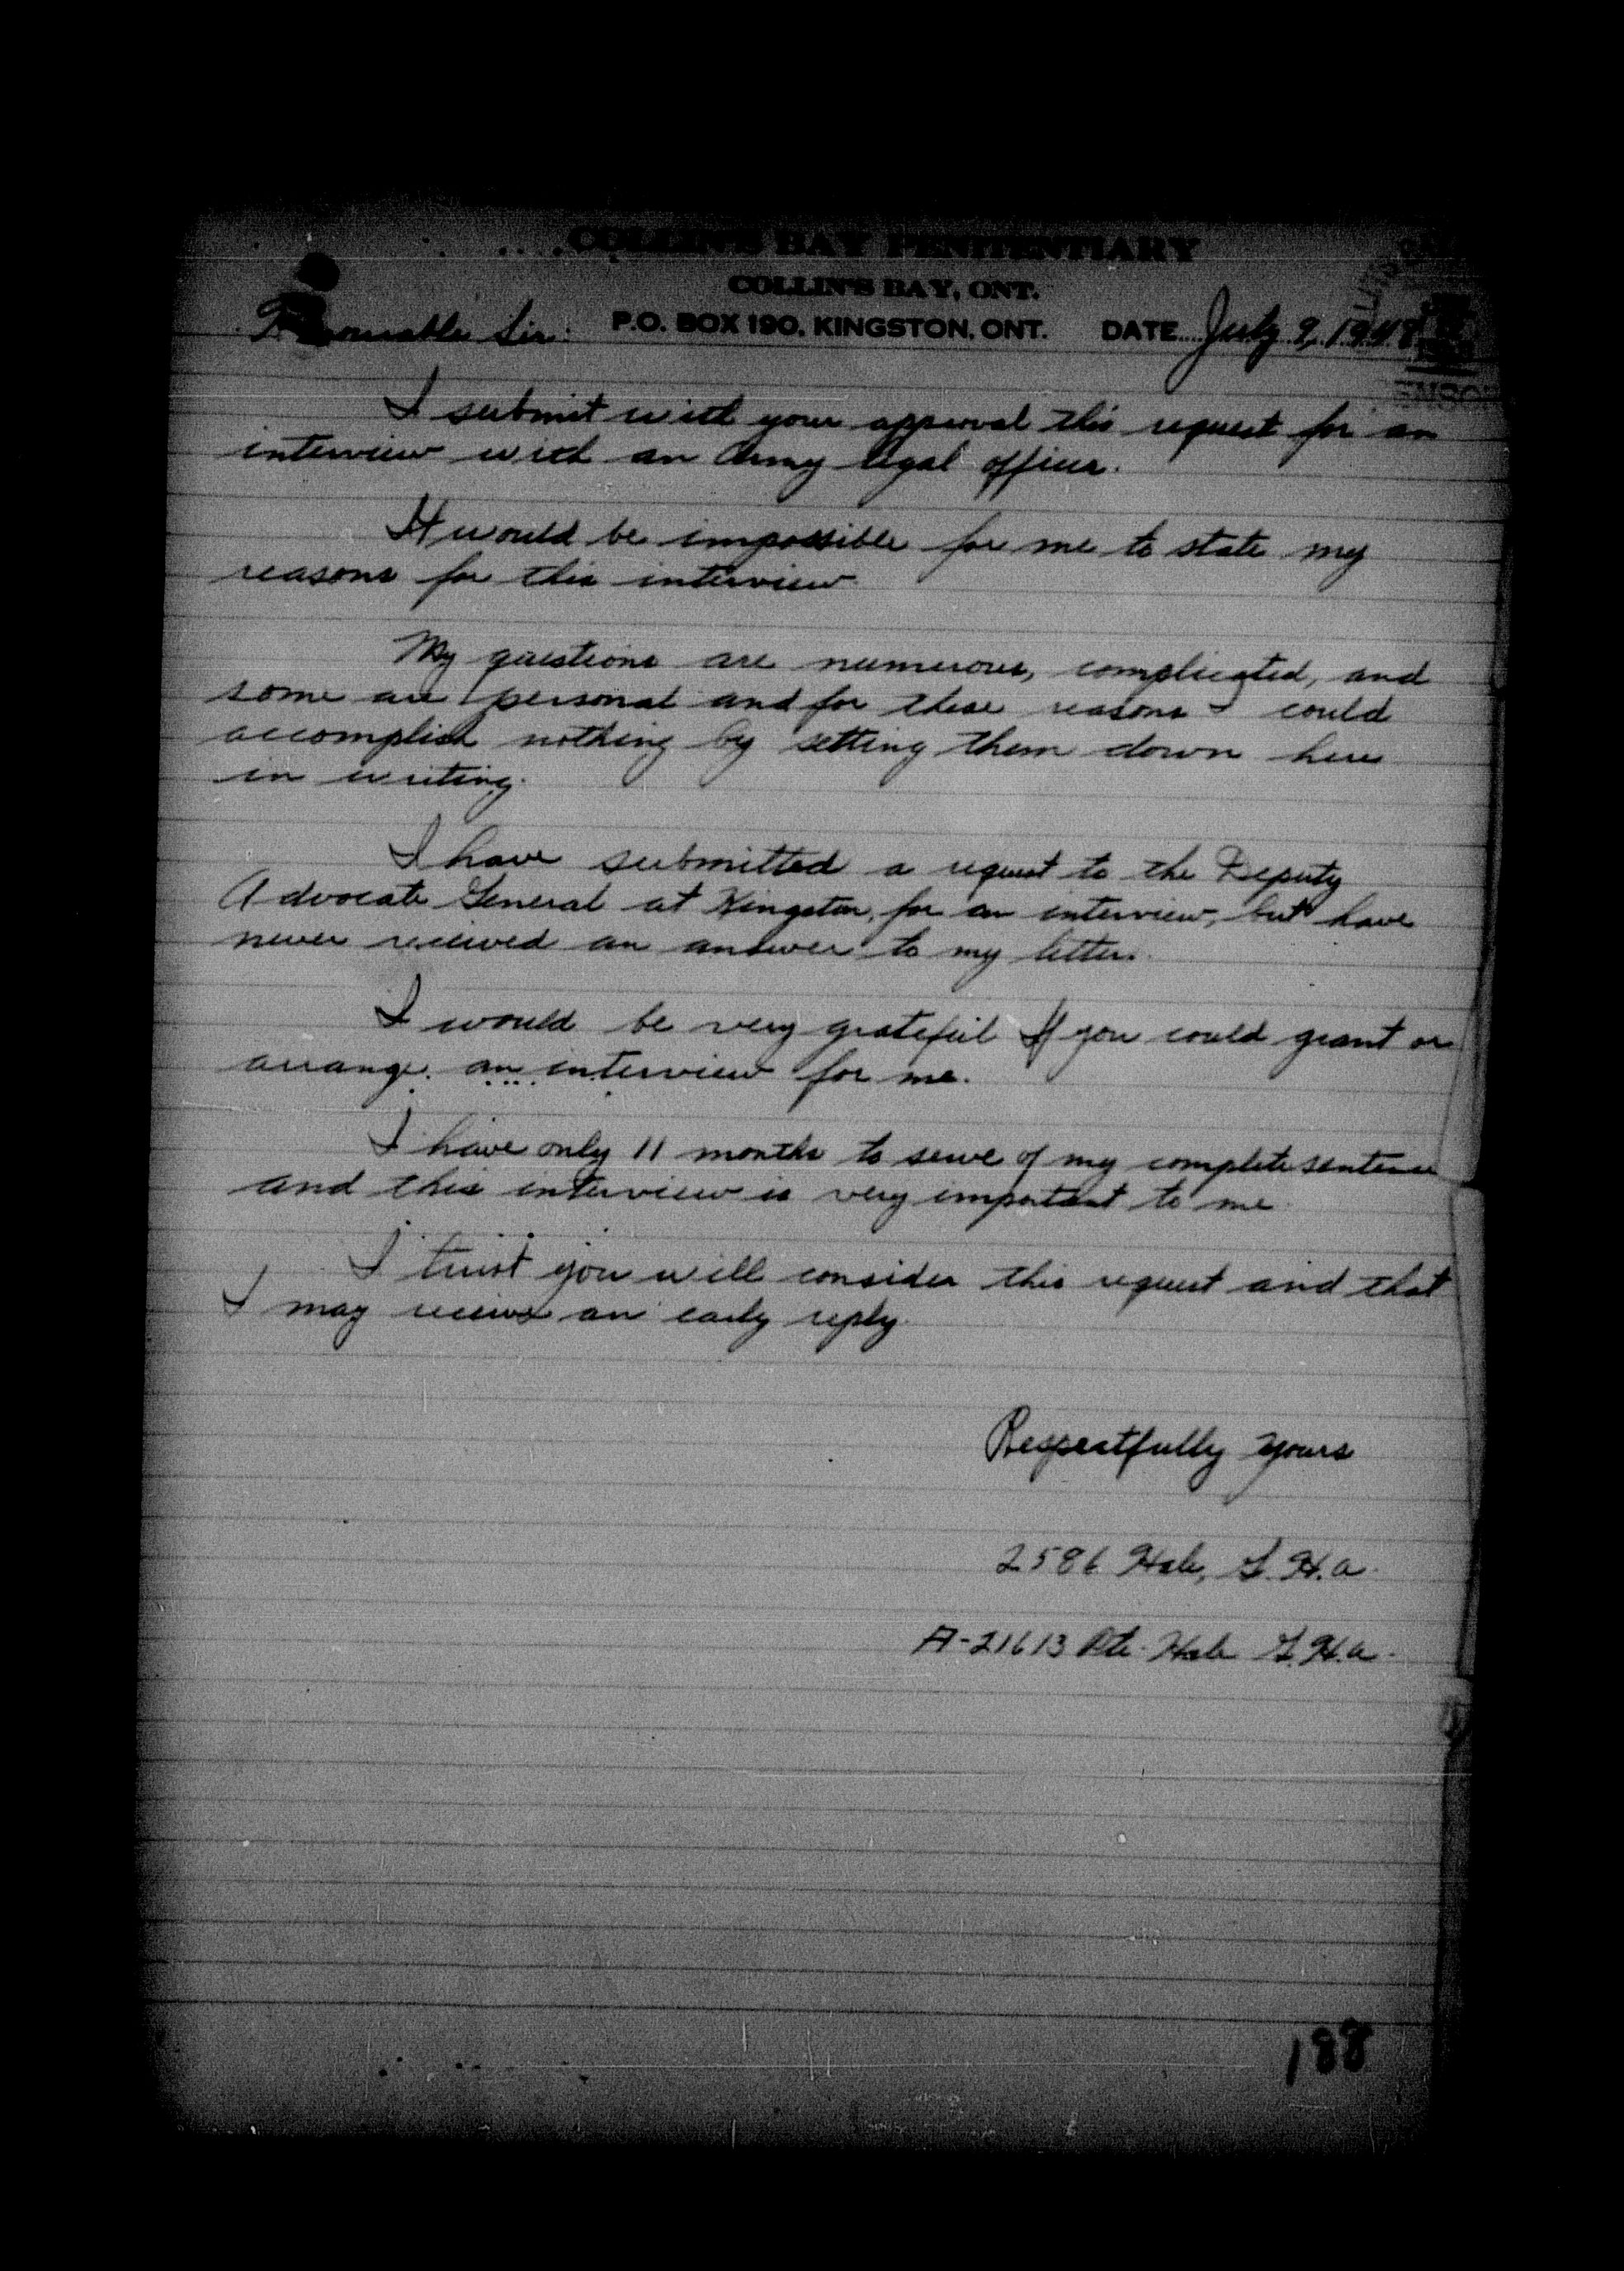 COLLIN'S BAY PENITENTIARY
COLLIN'S BAY, ONT.
P.O. BOX 190, KINGSTON, ONT. DATE July 9, 1948
Sir:
I submit with your approval this request for an
interview with an Army legal officer.
It would be impossible for me to state my
reasons for this interview.
My questions are numerous, complicated, and
some are personal and for these reasons I could
accomplish nothing by setting them down here
in writing.
I have submitted a request to the Deputy
Advocate General at Kingston, for an interview, but have
never received an answer to my letter.
I would be very grateful If you could grant or
arrange an interview for me.
I have only 11 months to serve of my complete sentence
and this interview is very important to me.
I trust you will consider this request and that
I may receive an early reply.
Respectfully yours
2586 Hale, G.H.A.
A-21613 Pte. Hale G.H.A.
188